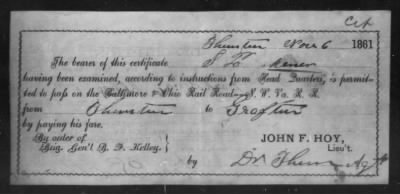 Nov 6 1861
The bearer of this certificate
having been examined, according to instructions from Head Quarters, is permit-
ted to pass on the Baltimore & Ohio Rail Road—N. W. Va. R. R.
from to Grafton
by paying his fare.
By order of
Brig. Gen'l B. F. Kelley.
JOHN F. HOY,
Lieu't.
by Agt